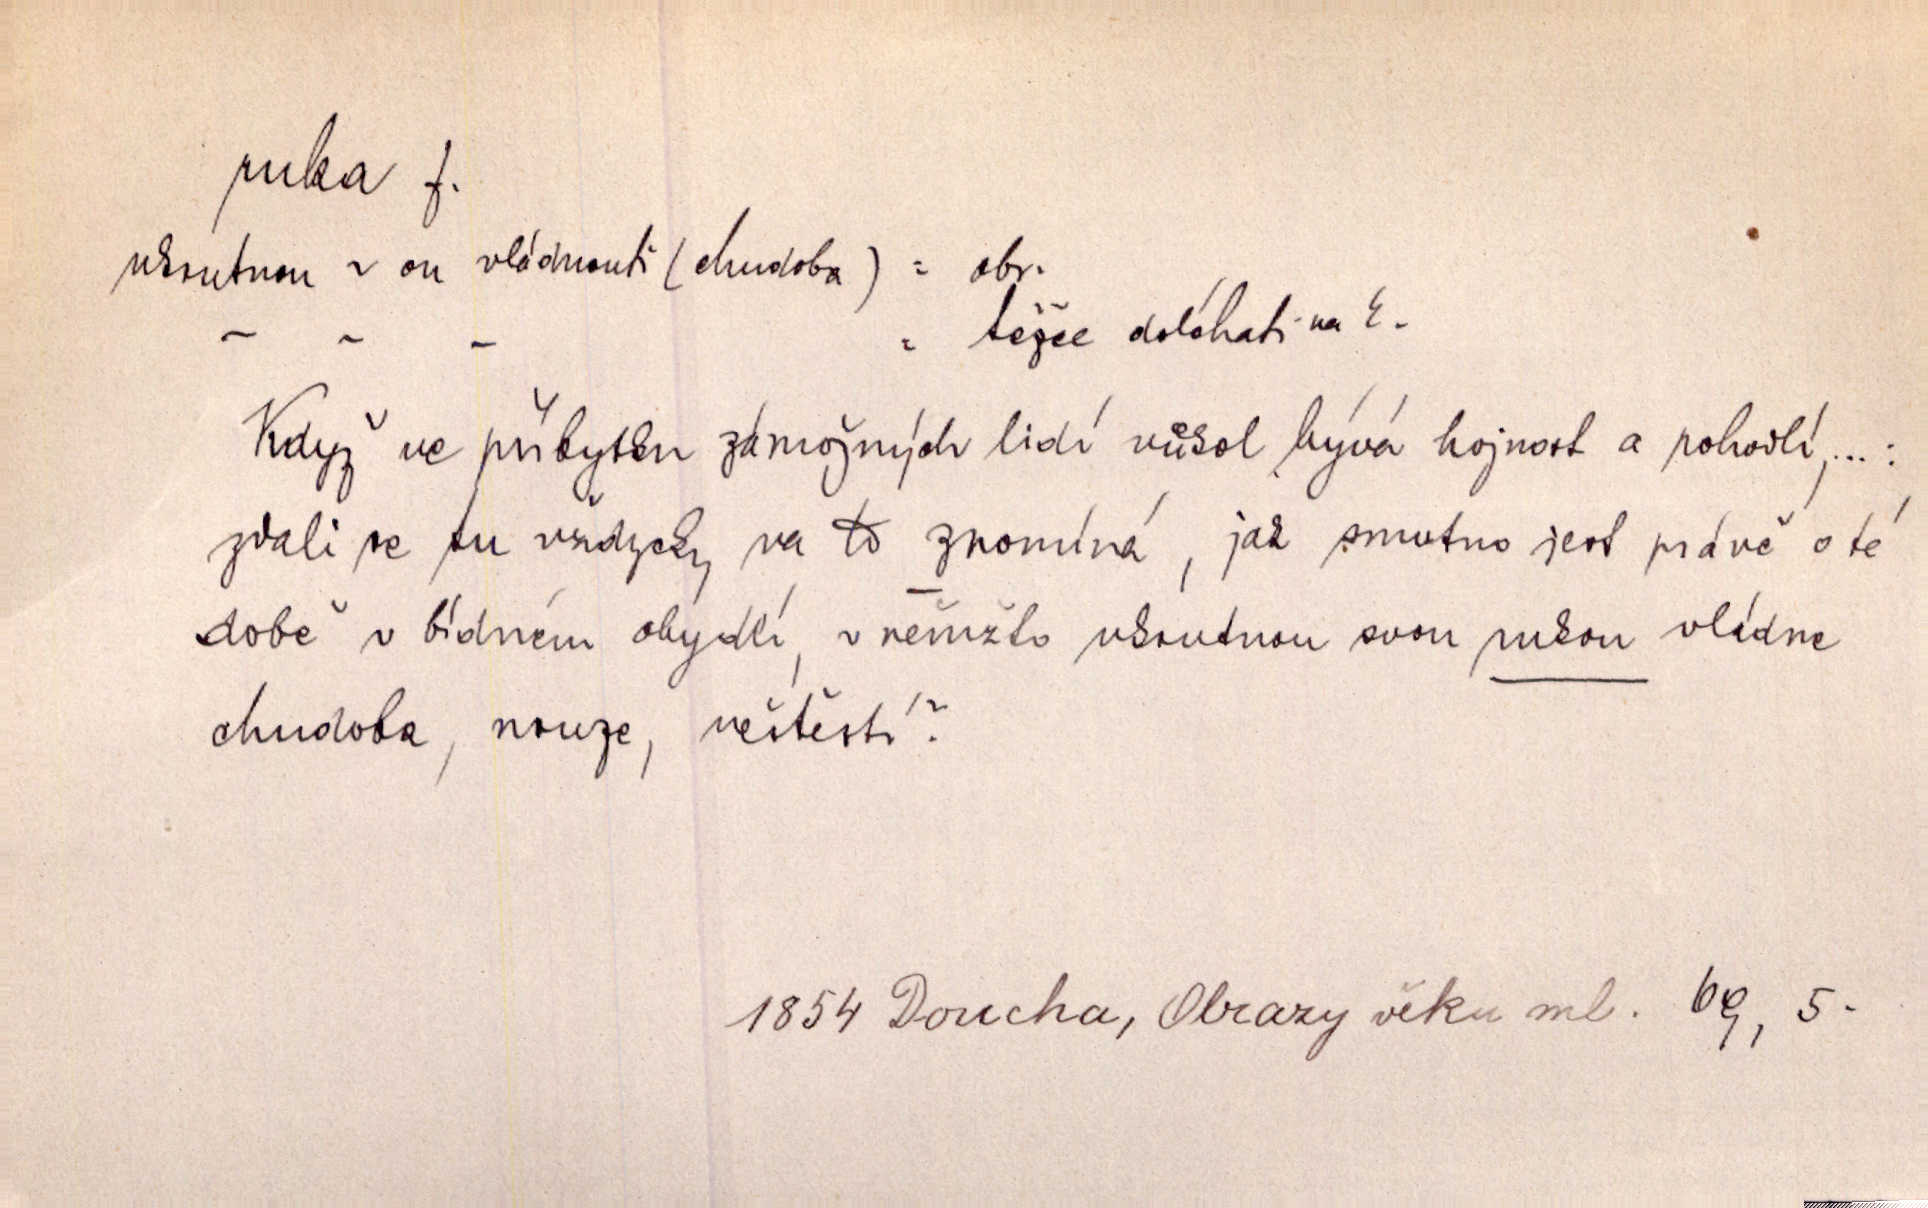 ruka f.
ukrutnou ~ ou vládnouti (chudoba) = obr.
~ ~ ~ = těžce doléhati na č.
Když ve příbytku zámožných lidí vůkol bývá hojnost a pohodlí,...:
zdali se tu vždycky na to zpomíná, jak smutno jest právě o té
době v bídném obydlí, v němžto ukrutnou svou rukou vládne
chudoba, nouze, neštěstí?
1854 Doucha, Obrazy věku ml. 69, 5.